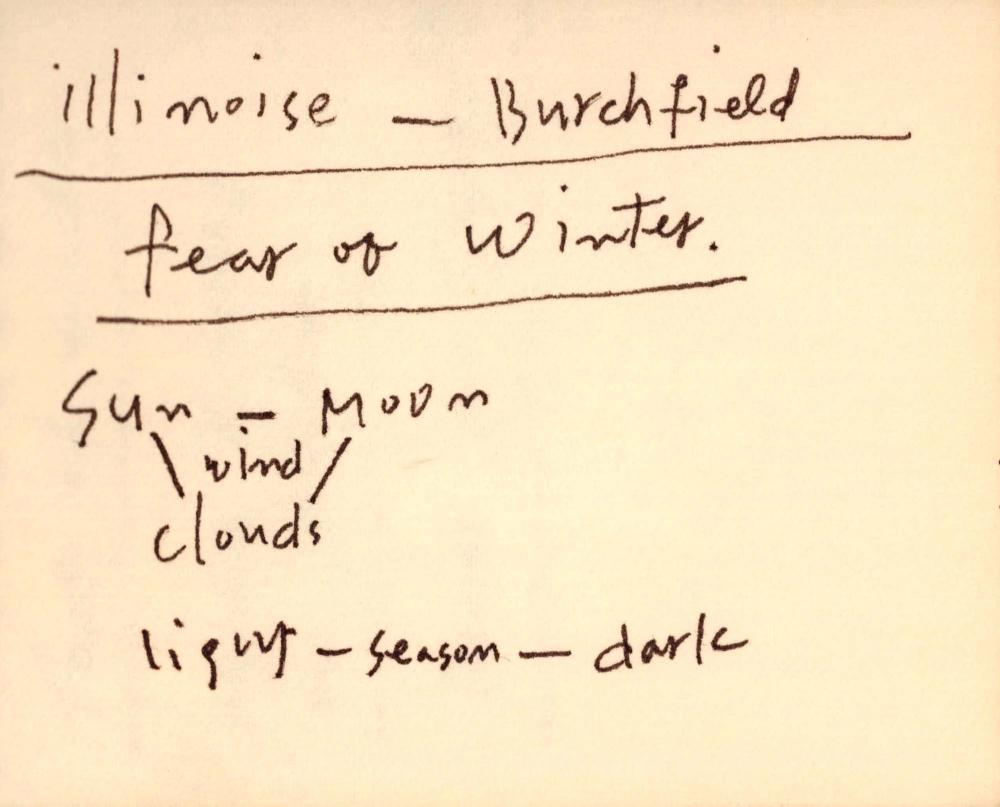 illinoise – Burchfield
fear of winter.
Sun – Moon
wind
clouds
light – season – dark